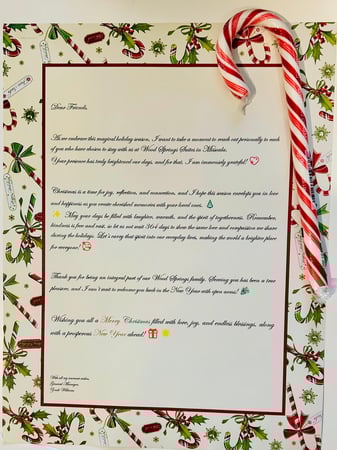 Dear Friends,
As we embrace this magical holiday season, I want to take a moment to reach out personally to each
of you who have chosen to stay with us at Wood Springs Suites in Missoula.
Your presence has truly brightened our days, and for that, I am immensely grateful!
Christmas is a time for joy, reflection, and connection, and I hope this season envelops you in love
and happiness as you create cherished memories with your loved ones.
May your days be filled with laughter, warmth, and the spirit of togetherness. Remember,
kindness is free and vast, so let us not wait 364 days to show the same love and compassion we share
during the holidays. Let's carry that spirit into our everyday lives, making the world a brighter place
for everyone!
Thank you for being an integral part of our Wood Springs family. Serving you has been a true
pleasure, and I can't wait to welcome you back in the New Year with open arms!
Wishing you all a Merry Christmas filled with love, joy, and endless blessings, along
with a prosperous New Year ahead!
With all my warmest wishes,
General Manager